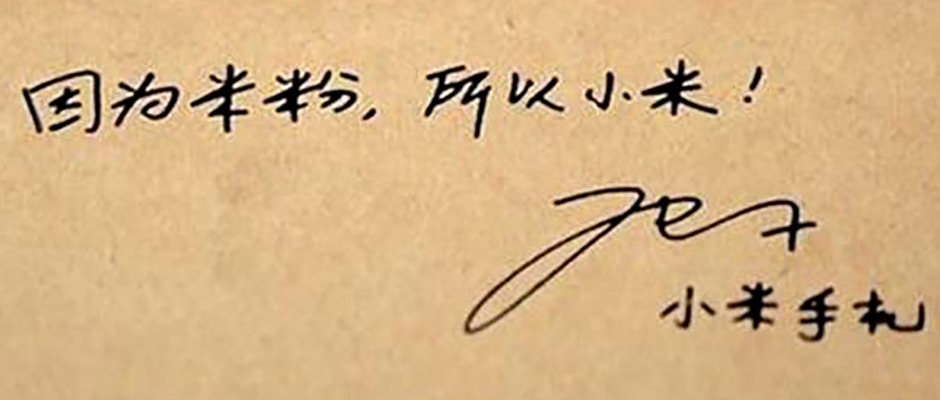 因为米粉，所以小米！
小米手机